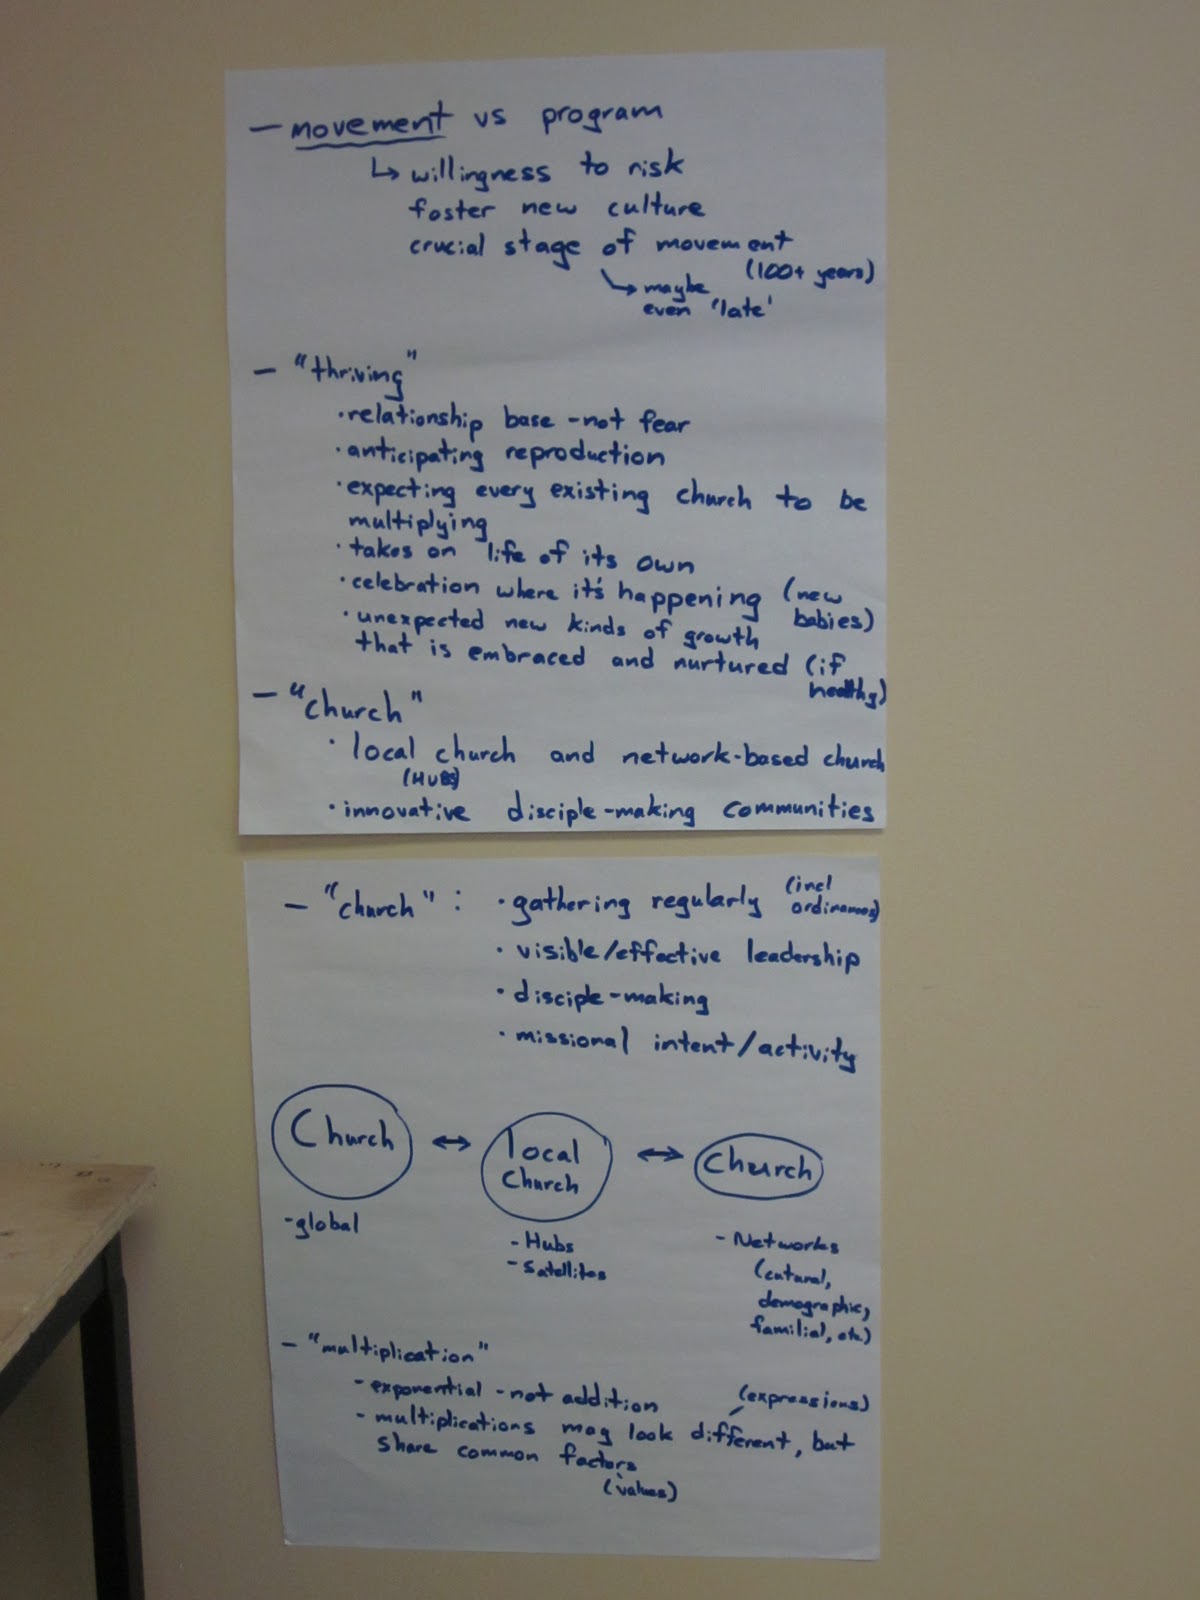 - movement vs program
↳ willingness to risk
foster new culture
crucial stage of movement
(100+ years)
↳ maybe
even 'late'
- "thriving"
· relationship base - not fear
· anticipating reproduction
· expecting every existing church to be
multiplying
· takes on life of its own
· celebration where it's happening (new
babies)
· unexpected new kinds of growth
that is embraced and nurtured (if
healthy)
- "church"
· local church and network-based church
(HUB)
· innovative disciple-making communities
- "church" : · gathering regularly (incl
ordinances)
· visible/effective leadership
· disciple-making
· missional intent/activity
Church ↔ local ↔ church
church
- global
- Hubs
- Satellites
- Networks
(cutural,
demographic,
familial, etc.)
- "multiplication"
- exponential - not addition (expressions)
- multiplications may look different, but
share common factors
(values)